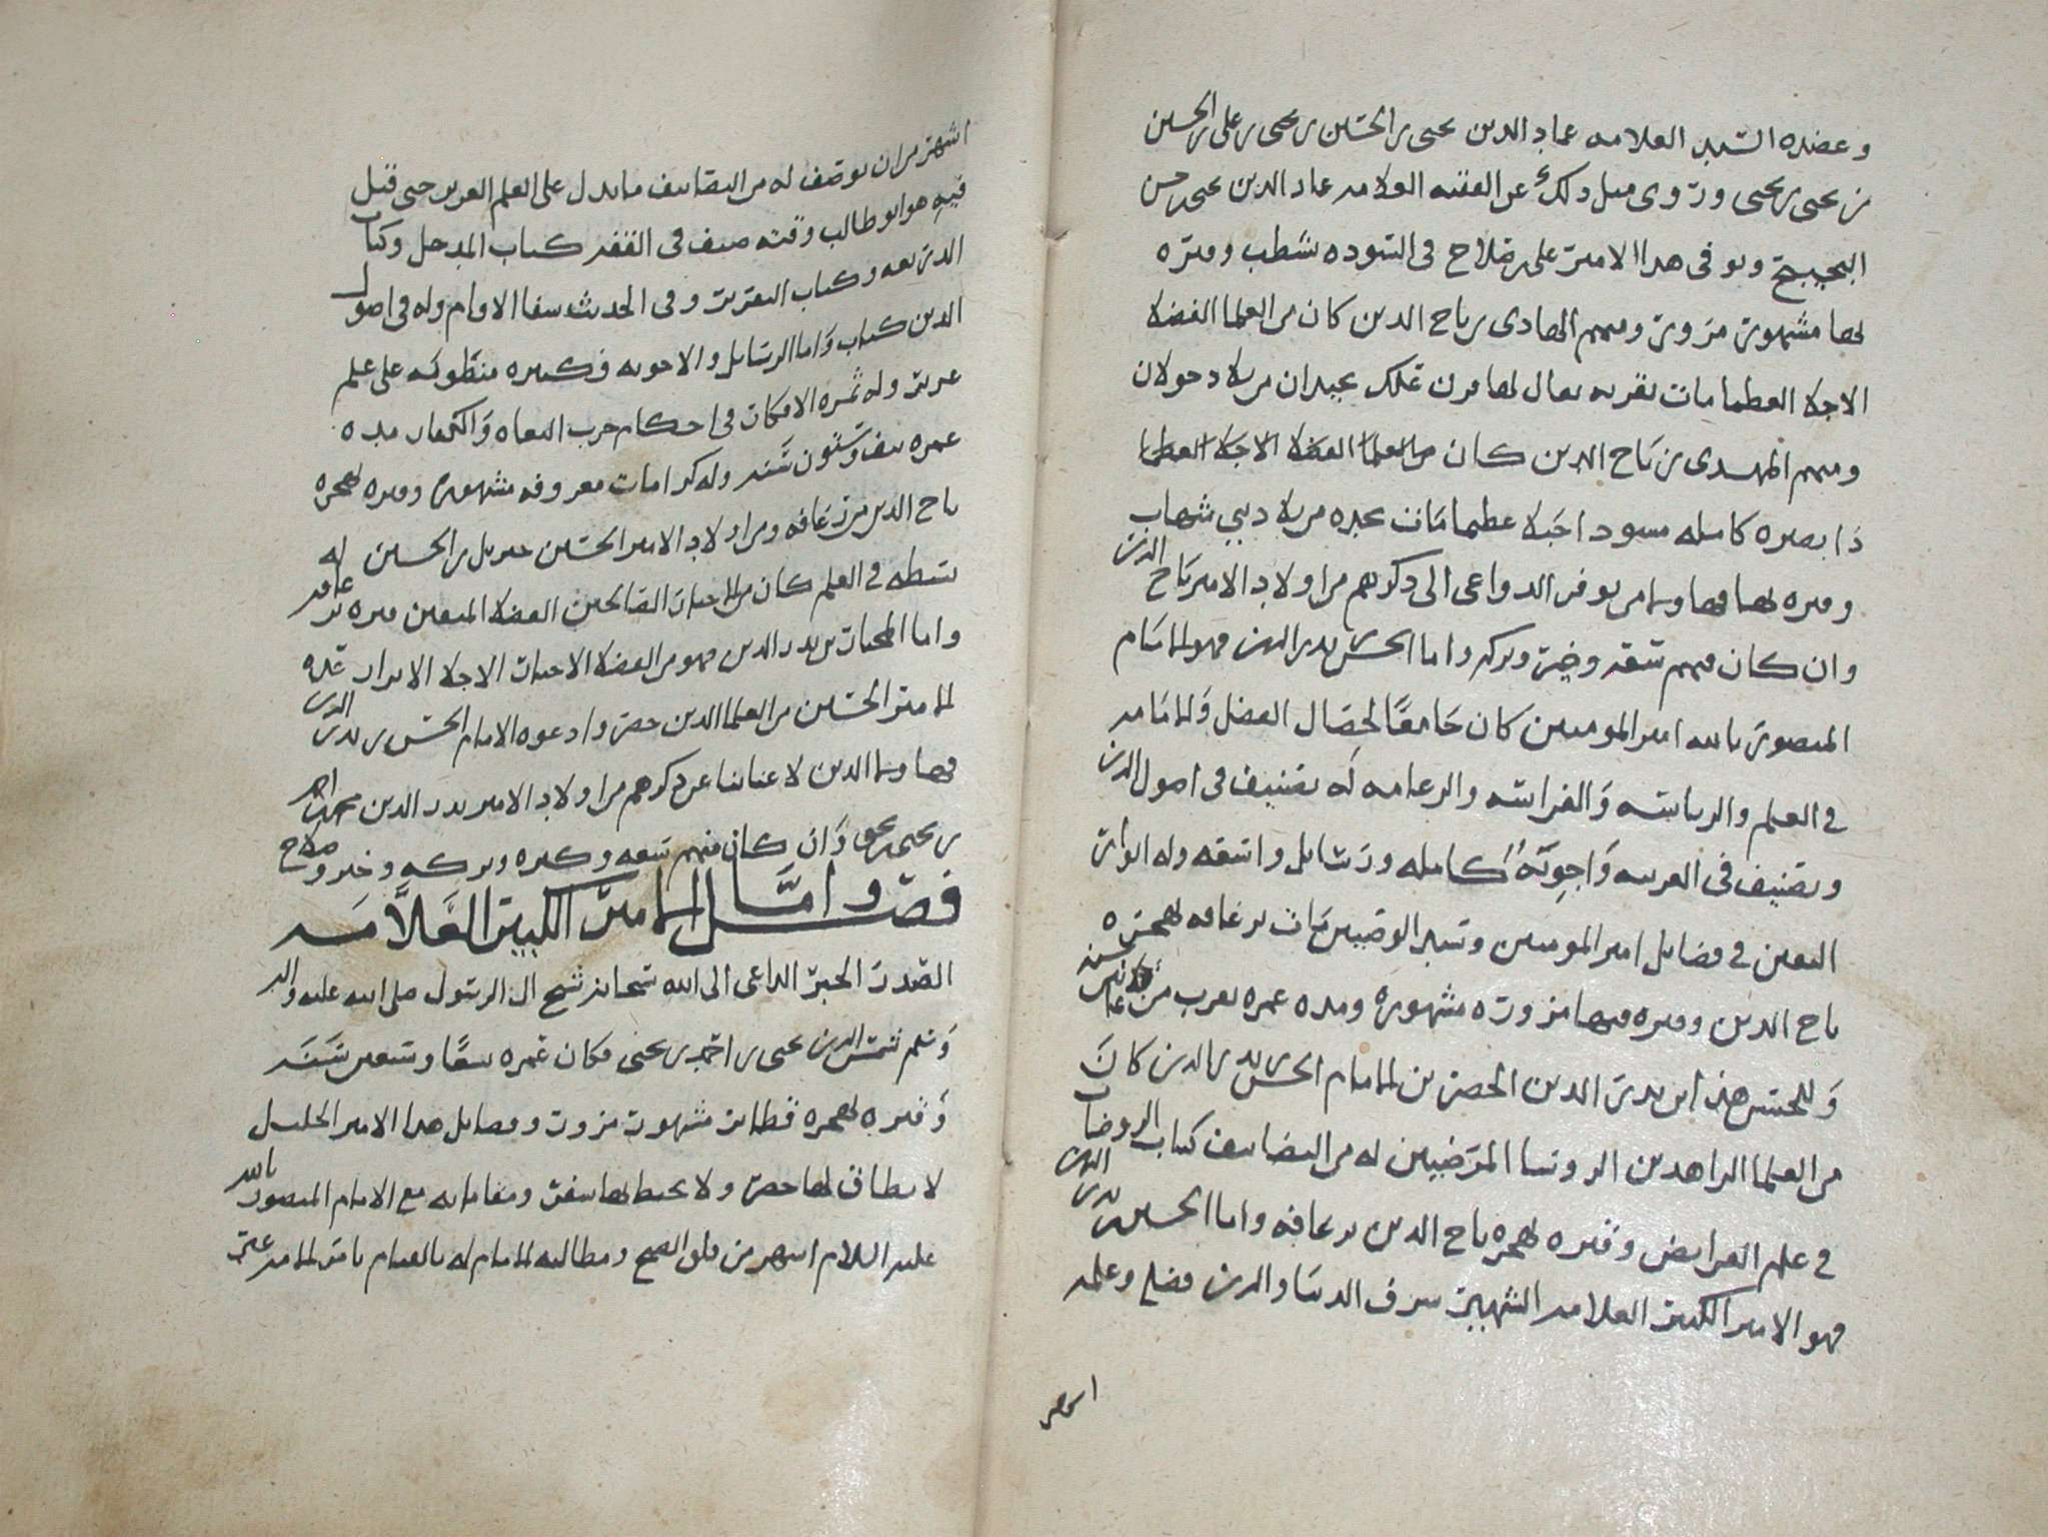 وعضده السيد العلامه عماد الدين يحيى بن الحسين بن يحيى بن علي بن الحسين
بن يحيى بن يحيى وروى مثل ذلك عن الفقيه العلامه عماد الدين يحيى حسن
البحيبح وتوفى هذا الامير على بن صلاح فى السوده بشطب وقبره
بها مشهور مزور ومنهم الهادى بن تاج الدين كان من العلما الفضلا
الاجلا العظما مات بقريه يقال لها من بلاد خولان
ومنهم المهدى بن تاج الدين كان من العلما الفضلا الاجلا العظما
ذا بصيره كامله عظيما مات من بلاد بني شهاب
وقبره بها فيها ولم تتوفر الدواعى الى ذكرهم من اولاد الامير تاج الدين
وان كان فيهم سعه وخير وبركه واما الحسن بن بدر الدين فهو الامام
المنصور بالله امير المومنين كان جامعًا لخصال الفضل والامامه
في العلم والرياسه والفراسه والزعامه له تصنيف فى اصول الدين
وتصنيف فى العربيه واجوبة كامله ورسايل واسعه وله انوار
اليقين في فضايل امير المومنين وسيد الوصيين مات برغافه بهجره
تاج الدين وقبره فيها مزوره مشهوره ومده عمره يقرب من سنه
وللحسن هذا ابن بدر الدين الحسن بن الامام الحسن بن بدر الدين كان
من العلما الزاهدين الروسا المرضيين له من التصانيف كتاب الروضات
في علم الفرايض وقبره بهجره تاج الدين برغافه واما الحسين بن بدر الدين
فهو الامير الكبير العلامه الشهير شرف الدنيا والدين فضله وعلمه
اشهر
اشهر من ان يوصف له من التصانيف ما يدل على العلم الغرير حتى قيل
فيه هو ابو طالب وقته صنف فى الفقه كتاب المدخل وكتاب
الذريعه وكتاب التقرير وفى الحديث شفا الاوام وله في اصول
الدين كتاب واما الرسايل والاجوبه فكثيره منطويه على علم
غرير وله ثمره الافكار فى احكام حرب البغاه والكفار مده
عمره نيف وستون سنه وله كرامات معروفه مشهوره وقبره بهجره
تاج الدين من رغافه ومن اولاد الامير الحسين جبريل بن الحسين له
بسطه في العلم كان من الاخيار الصالحين الفضلا المتقين قبره برغافه
واما المختار بن بدر الدين فهو من الفضلا الاخيار الاجلا الابرار
الامير الحسين من العلما الذين حضروا دعوه الامام الحسن بن بدر الدين
فيها ولم الدين لا عنايتنا عن ذكرهم من اولاد الامير بدر الدين محمد بن احمد
بن يحيى بن يحيى وان كان فيهم سعه وكثره وبركه وخير وصلاح
فصل واما الامير الكبير العلامه
الصدر الحبر الداعى الى الله سبحانه شيخ ال الرسول صلى الله عليه واله
وسلم شمس الدين يحيى بن احمد بن يحيى فكان عمره سبعًا وسبعين سنه
وقبره بهجره قطابر مشهور مزور وفضايل هذا الامير الجليل
لا يطاق لها حصر ولا يحيط بها سفر ومقاماته مع الامام المنصور بالله
عليه السلام اشهر من فلق الصبح ومطالبه الامام له بالقيام بامر الامه